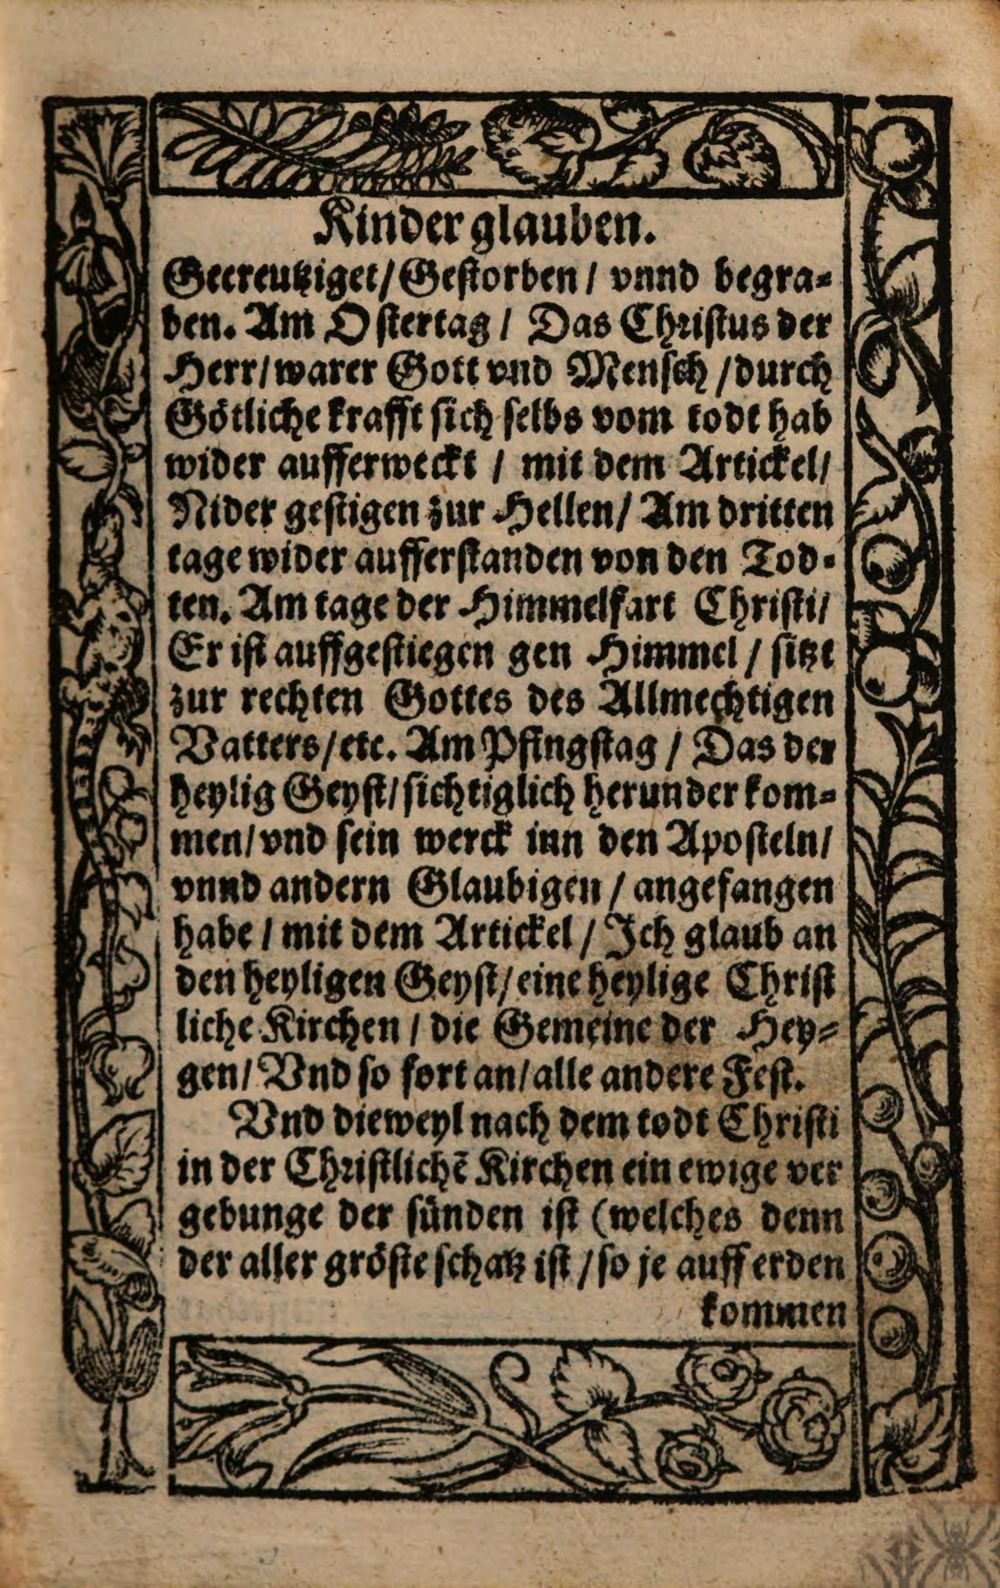 Kinder glauben.
Gecreutziget / Gestorben / vnnd begra=
ben. Am Ostertag / Das Christus der
Herr / warer Gott vnd Mensch / durch
Götliche krafft sich selbs vom todt hab
wider aufferweckt / mit dem Artickel /
Nider gestigen zur Hellen / Am dritten
tage wider aufferstanden von den Tod=
ten. Am tage der Himmelfart Christi /
Er ist auffgestiegen gen Himmel / sitzt
zur rechten Gottes des Allmechtigen
Vatters / etc. Am Pfingstag / Das der
heylig Geyst / sichtiglich herunder kom=
men / vnd sein werck inn den Aposteln /
vnnd andern Glaubigen / angefangen
habe / mit dem Artickel / Ich glaub an
den heyligen Geyst / eine heylige Christ
liche Kirchen / die Gemeine der Hey=
gen / Vnd so fort an / alle andere Fest.
Vnd dieweyl nach dem todt Christi
in der Christlichē Kirchen ein ewige ver
gebunge der sünden ist (welches denn
der aller gröste schatz ist / so je auff erden
kommen